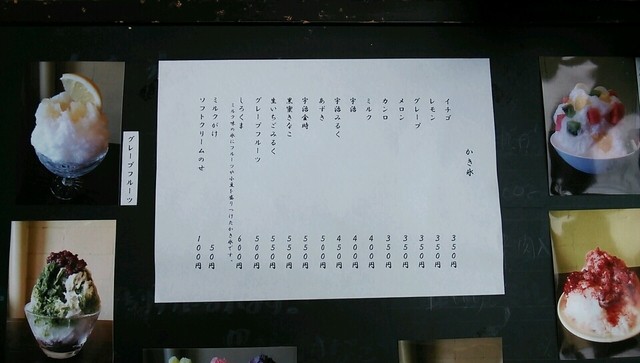 かき氷
イチゴ 350円
レモン 350円
グレープ 350円
メロン 350円
カンロ 350円
ミルク 400円
宇治 400円
宇治みるく 450円
あずき 500円
宇治金時 550円
黒蜜きなこ 550円
生いちごみるく 550円
グレープフルーツ 550円
しろくま 600円
ミルク味の氷にフルーツや小豆を盛りつけたかき氷です。
ミルクがけ 50円
ソフトクリームのせ 100円
グレープフルーツ